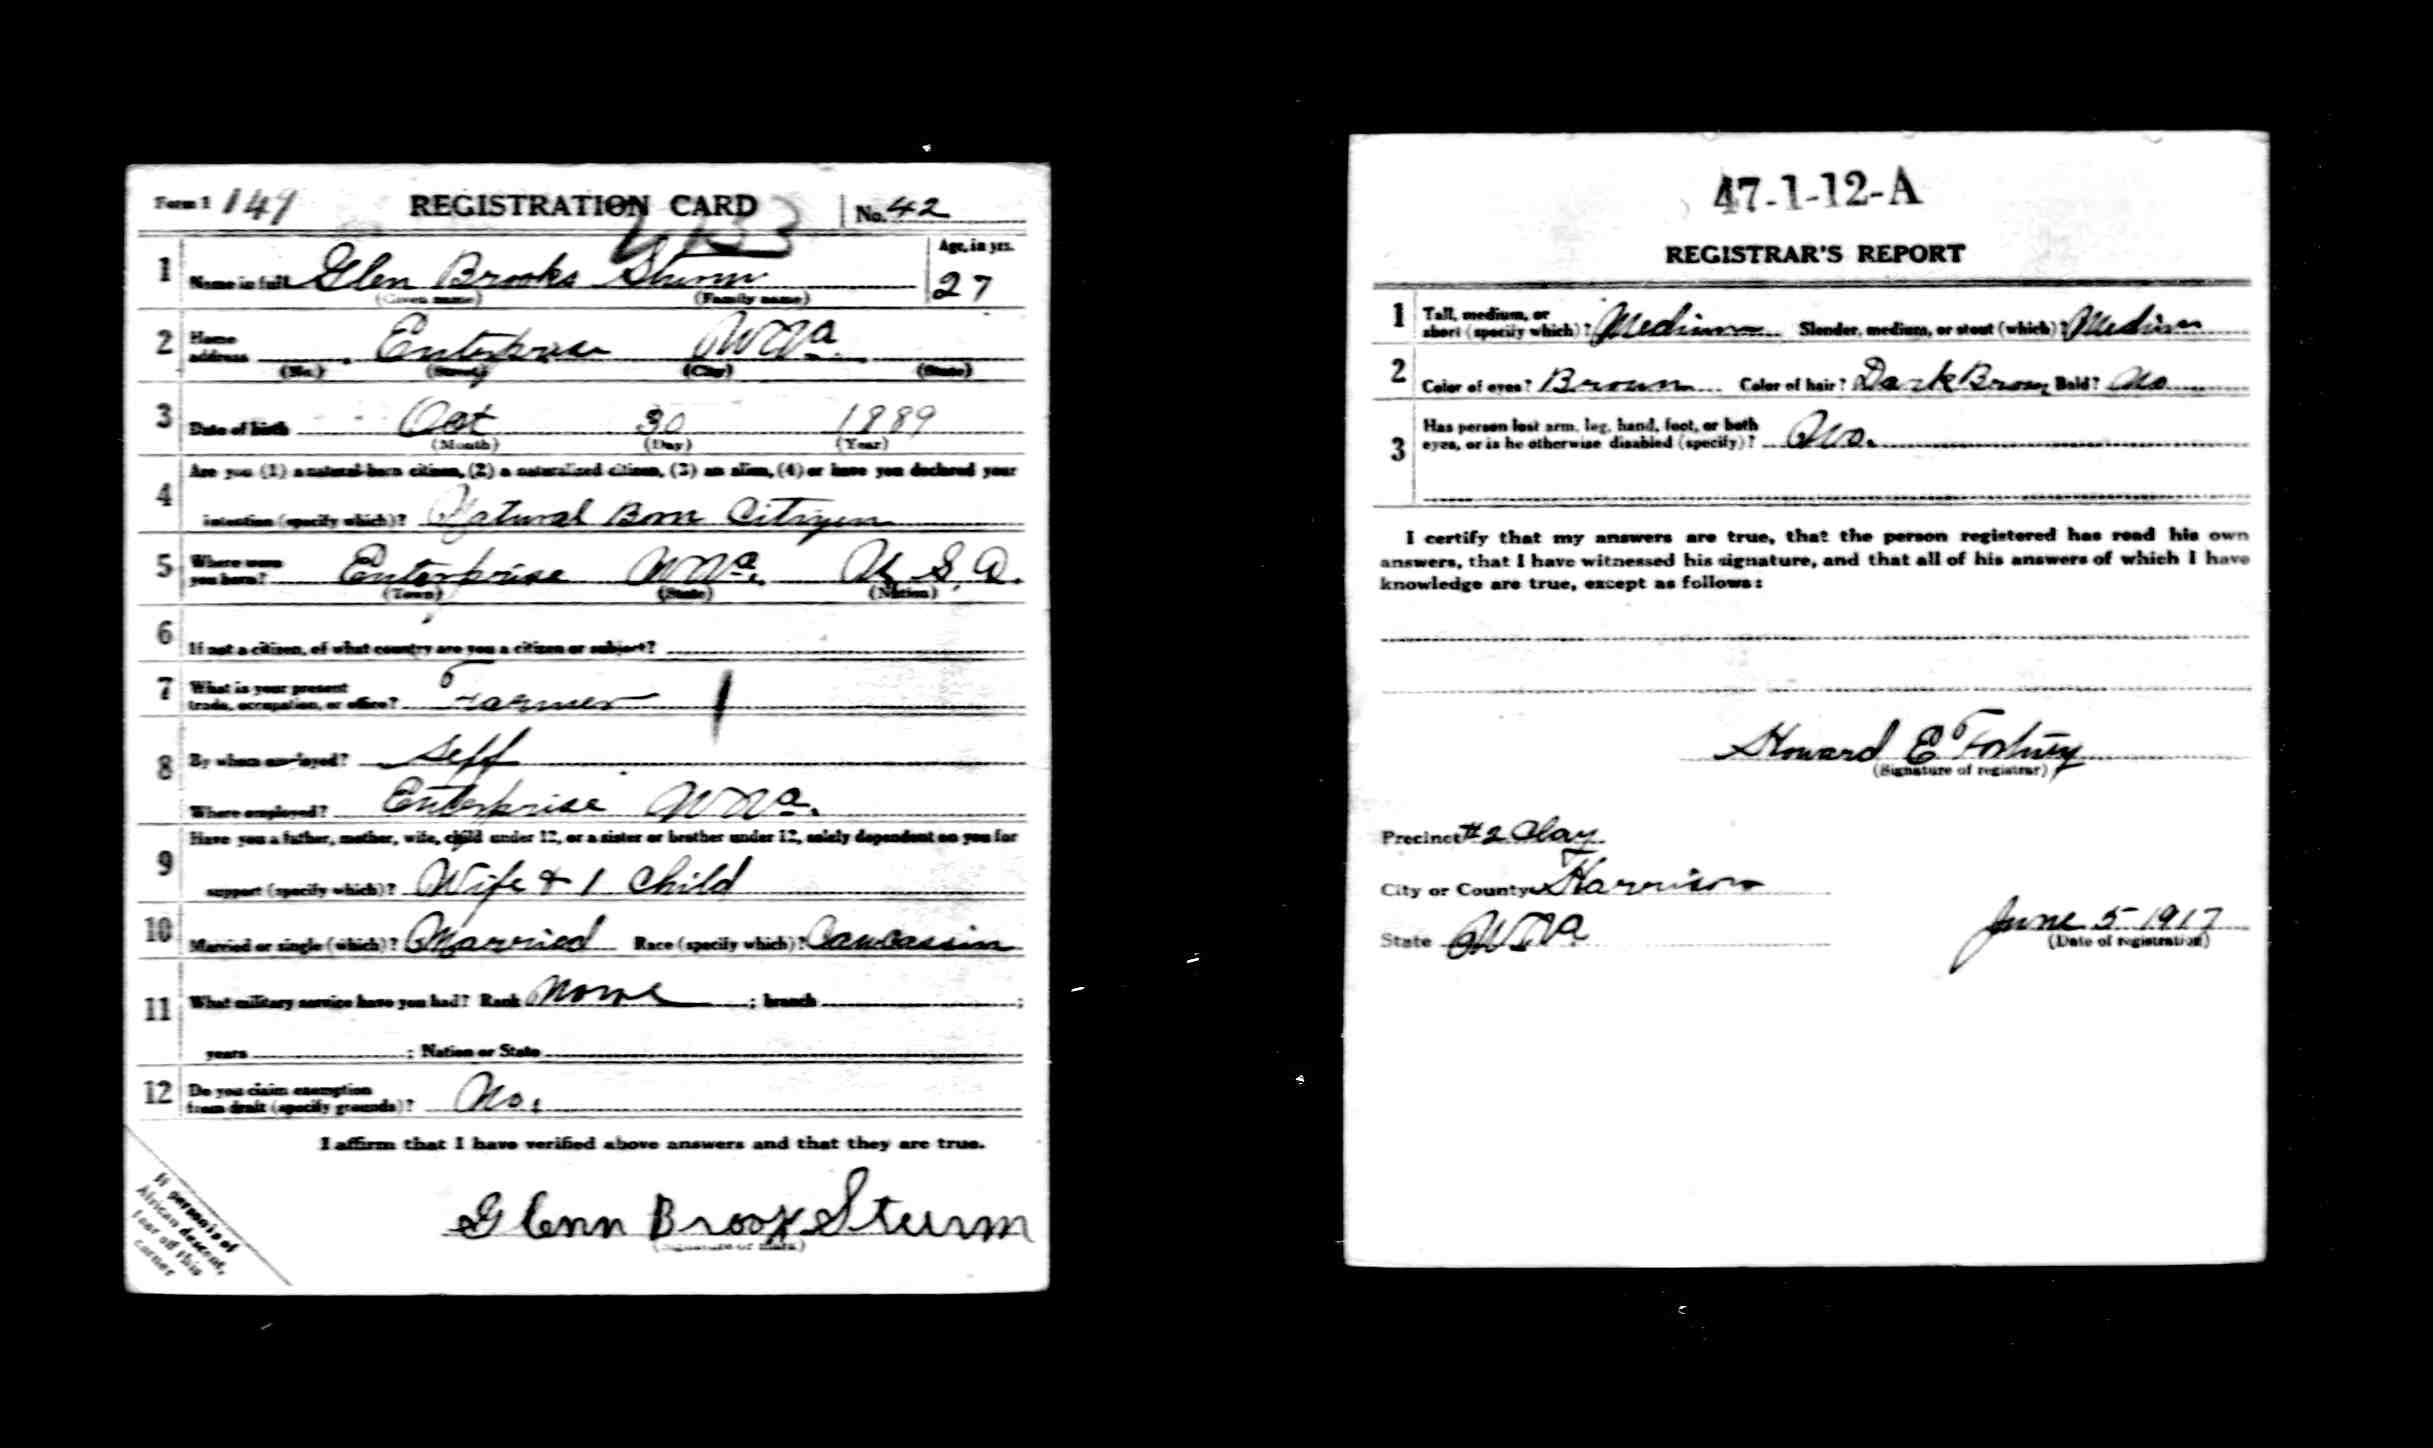 Form 1 149 REGISTRATION CARD No. 42
1 Name in full Glen Brooks Sturm Age, in yrs.
(Given name) (Family name) 27
2 Home address Enterprise W Va.
(No.) (Street) (City) (State)
3 Date of birth Oct 30 1889
(Month) (Day) (Year)
4 Are you (1) a natural-born citizen, (2) a naturalized citizen, (3) an alien, (4) or have you declared your
intention (specify which)? Natural Born Citizen
5 Where were you born? Enterprise W Va. U.S.A.
(Town) (State) (Nation)
6 If not a citizen, of what country are you a citizen or subject?
7 What is your present
trade, occupation, or office? Farmer
8 By whom employed? Self
Where employed? Enterprise W Va.
9 Have you a father, mother, wife, child under 12, or a sister or brother under 12, solely dependent on you for
support (specify which)? Wife & 1 Child
10 Married or single (which)? Married Race (specify which)? Caucassin
11 What military service have you had? Rank None ; branch ;
years ; Nation or State
12 Do you claim exemption
from draft (specify grounds)? No.
I affirm that I have verified above answers and that they are true.
Glenn Brook Sturm
(Signature or mark)
If person is of
African descent,
tear off this
corner
47-1-12-A
REGISTRAR'S REPORT
1 Tall, medium, or
short (specify which)? Medium Slender, medium, or stout (which)? Medium
2 Color of eyes? Brown Color of hair? Dark Brown Bald? No
3 Has person lost arm, leg, hand, foot, or both
eyes, or is he otherwise disabled (specify)? No.
I certify that my answers are true, that the person registered has read his own
answers, that I have witnessed his signature, and that all of his answers of which I have
knowledge are true, except as follows:
Howard E Fortney
(Signature of registrar)
Precinct #2 Clay
City or County Harrison
State W Va June 5 1917
(Date of registration)